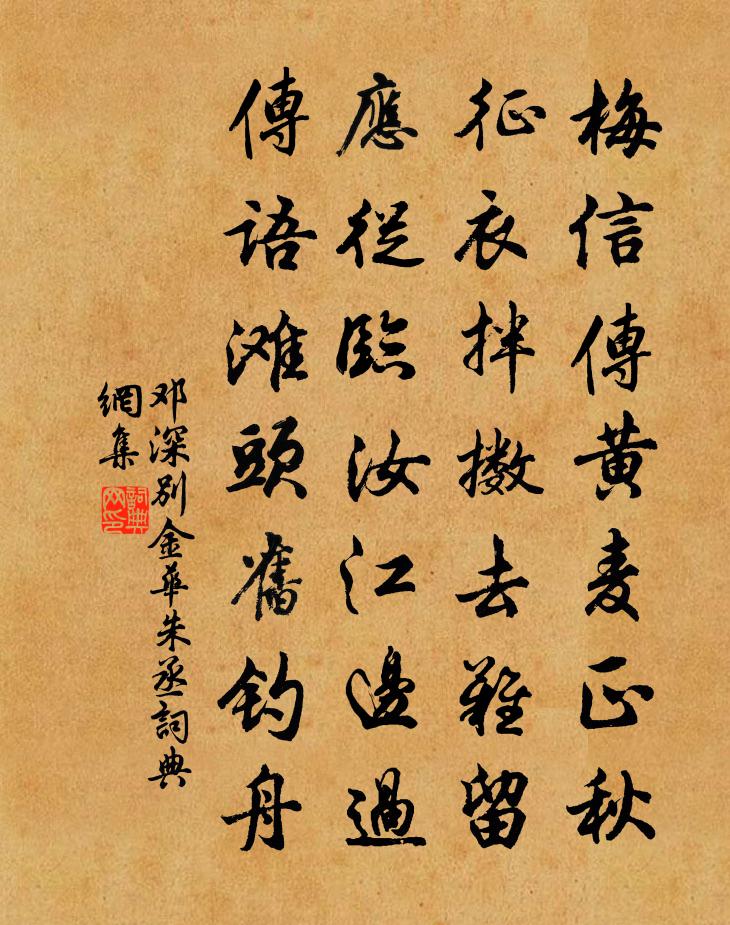 梅信傳黄麦正秋
征衣拌擞去難留
應從臨汝江邊過
傳語滩頭舊釣舟
邓深别金華朱丞詞典
網集
詞典網印